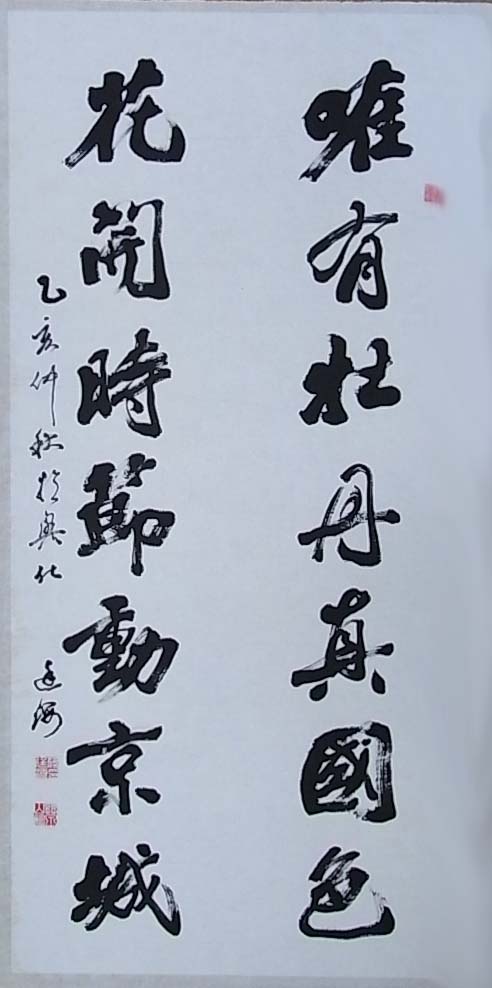 唯有牡丹真國色
花開時節動京城
乙亥仲秋於興化